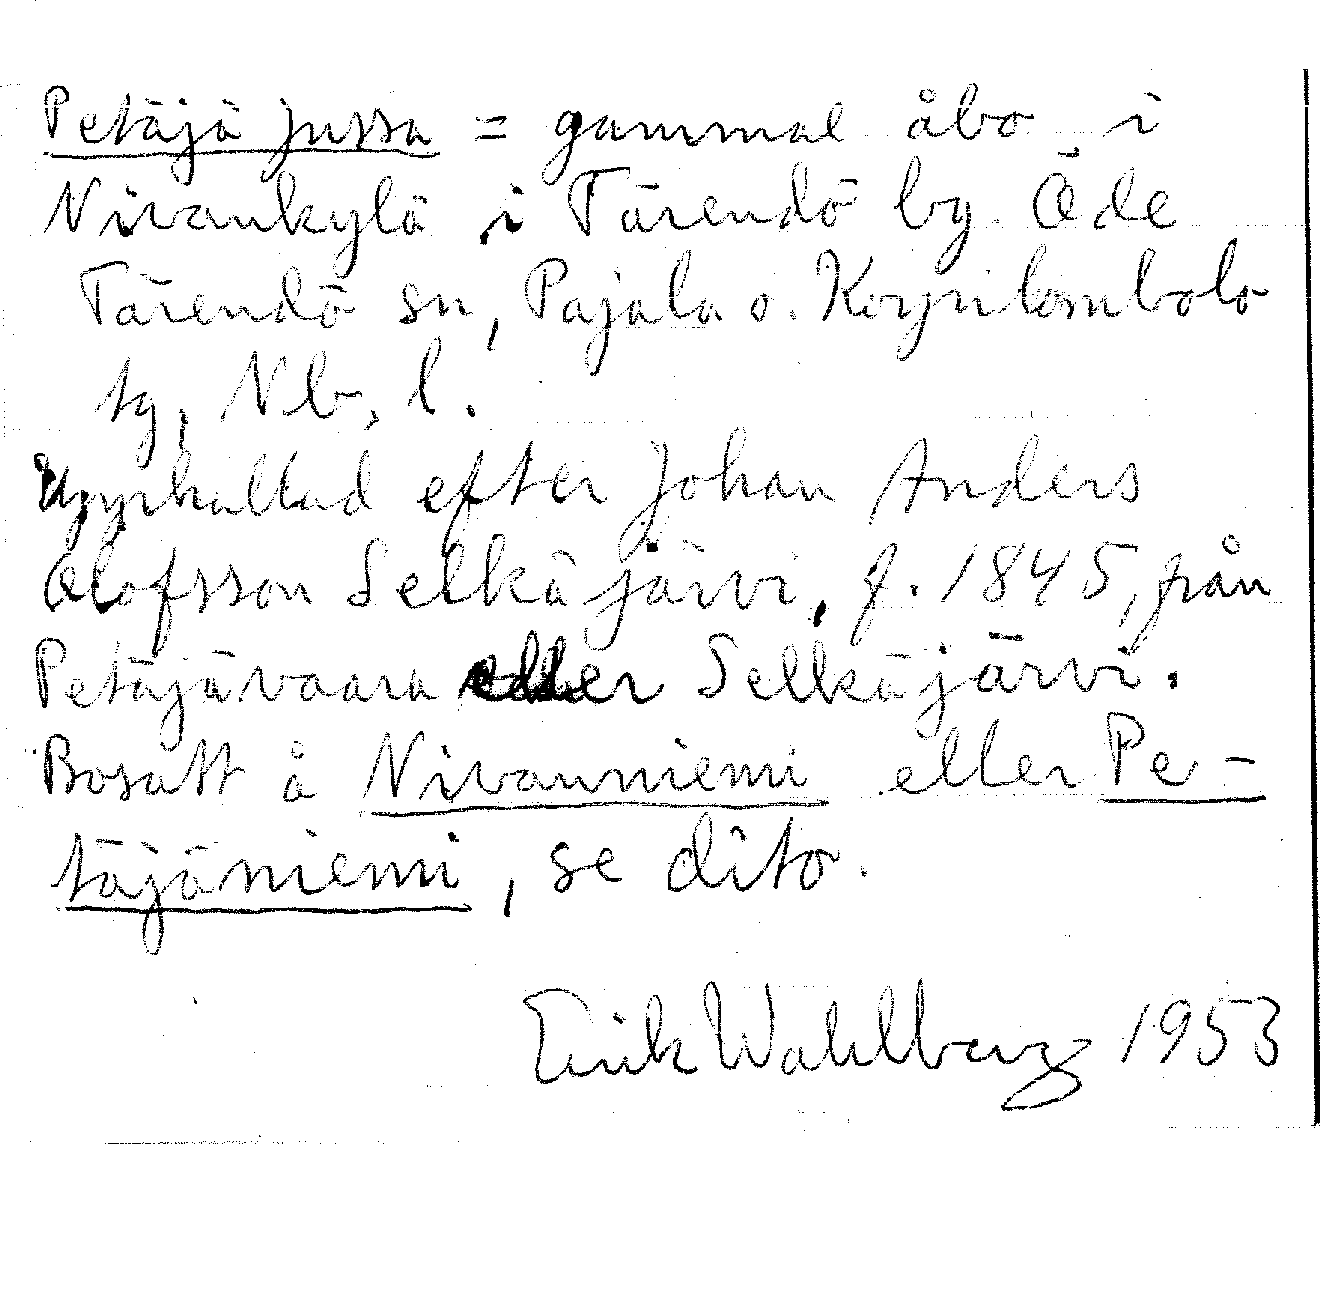 Petäjä Jussa = gammal åbo i
Nivankylä i Tärendö by. Öde
Tärendö sn, Pajala o. Korpilombolo
tg, Nb. l.
Uppkallad efter Johan Anders
Olofsson Selkäjärvi, f. 1845, från
Petäjävaara eller Selkäjärvi.
Bosatt å Nivanniemi eller Pe-
täjäniemi, se dito.
Erik Wahlberg 1953